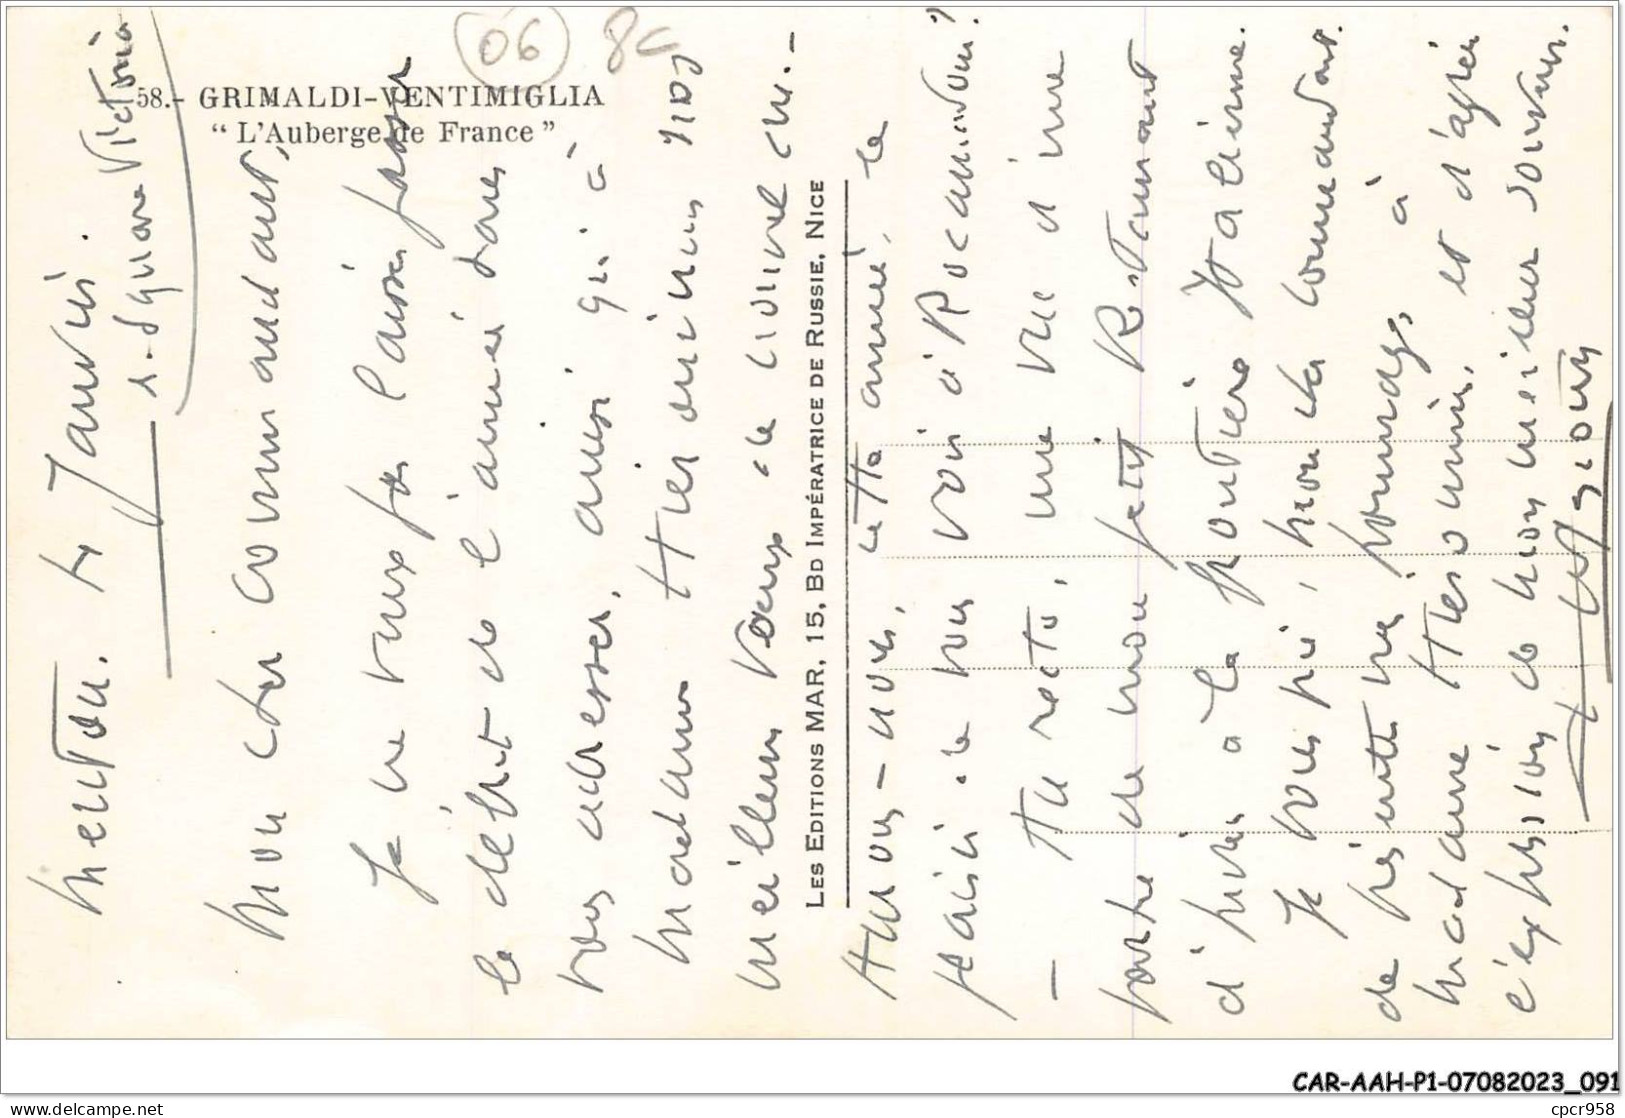 58.- GRIMALDI-VENTIMIGLIA
“ L'Auberge de France ”
06
8c
LES EDITIONS MAR, 15, BD IMPÉRATRICE DE RUSSIE, NICE
Menton. Le Janvier.
1. Square Victoria
Mon cher commandant,
Je ne veux pas laisser passer
le début de l'année sans
vous adresser, ainsi qu'à
Madame mes
meilleurs voeux.
Aurons-nous, cette année, le
plaisir de vous voir à Rocamadour?
- Au recto, une vue d'une
partie de mon petit Restaurant
d'hiver à la frontière Italienne.
Je vous prie, mon cher Commandant,
de présenter mes hommages à
Madame et d'agréer
l'expression de mon meilleur souvenir.
CAR-AAH-P1-07082023_091
delcampe.net
cpcr958